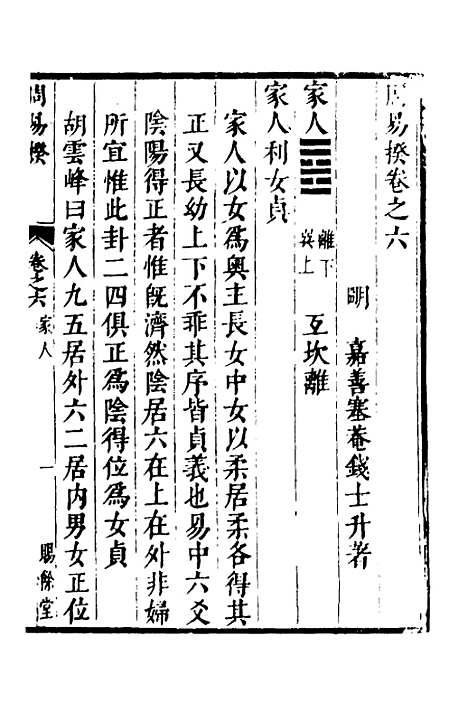 周易揆卷之六
明 嘉善塞菴錢士升著
家人䷤離下巽上 互坎離
家人利女貞
家人以女爲奧主長女中女以柔居柔各得其
正又長幼上下不乖其序皆貞義也易中六爻
陰陽得正者惟旣濟然陰居六在上在外非婦
所宜惟此卦二四俱正爲陰得位爲女貞
胡雲峰曰家人九五居外六二居内男女正位
周易揆 卷之六 家人 一 賜餘堂